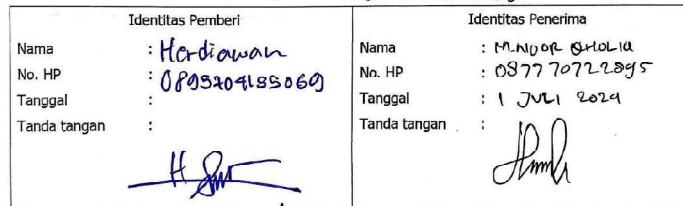 Identitas Pemberi
Nama : Herdiawan
No. HP : 0895704155069
Tanggal :
Tanda tangan :
Identitas Penerima
Nama : M. NUOR
No. HP : 087770722895
Tanggal : 1 JULI 2024
Tanda tangan :